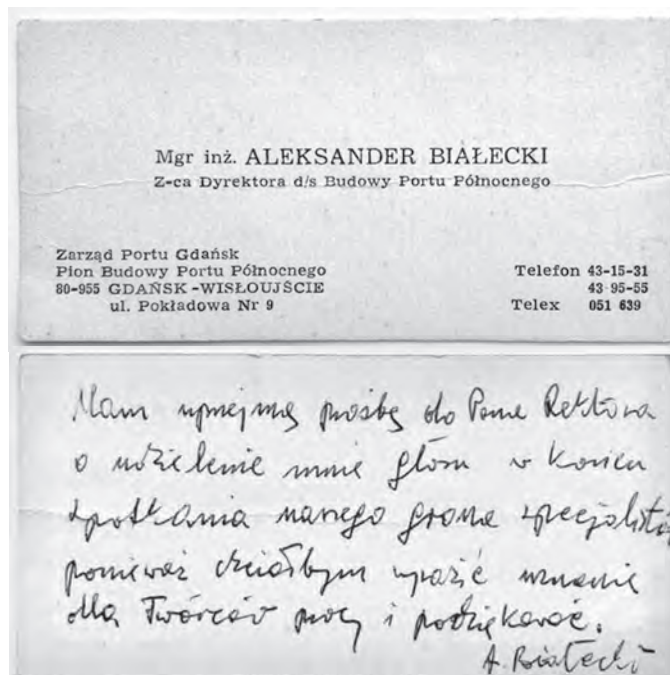 Mgr inż. ALEKSANDER BIAŁECKI
Z-ca Dyrektora d/s Budowy Portu Północnego
Zarząd Portu Gdańsk
Pion Budowy Portu Północnego
80-955 GDAŃSK-WISŁOUJŚCIE
ul. Pokładowa Nr 9
Telefon 43-15-31
43-95-55
Telex 051 639
Mam uprzejmą prośbę do Pana Rektora
o udzielenie mnie głosu w końcu
spotkania naszego grona specjalistów
ponieważ chciałbym wyrazić uznanie
dla Twórców pracy i podziękować.
A. Białecki